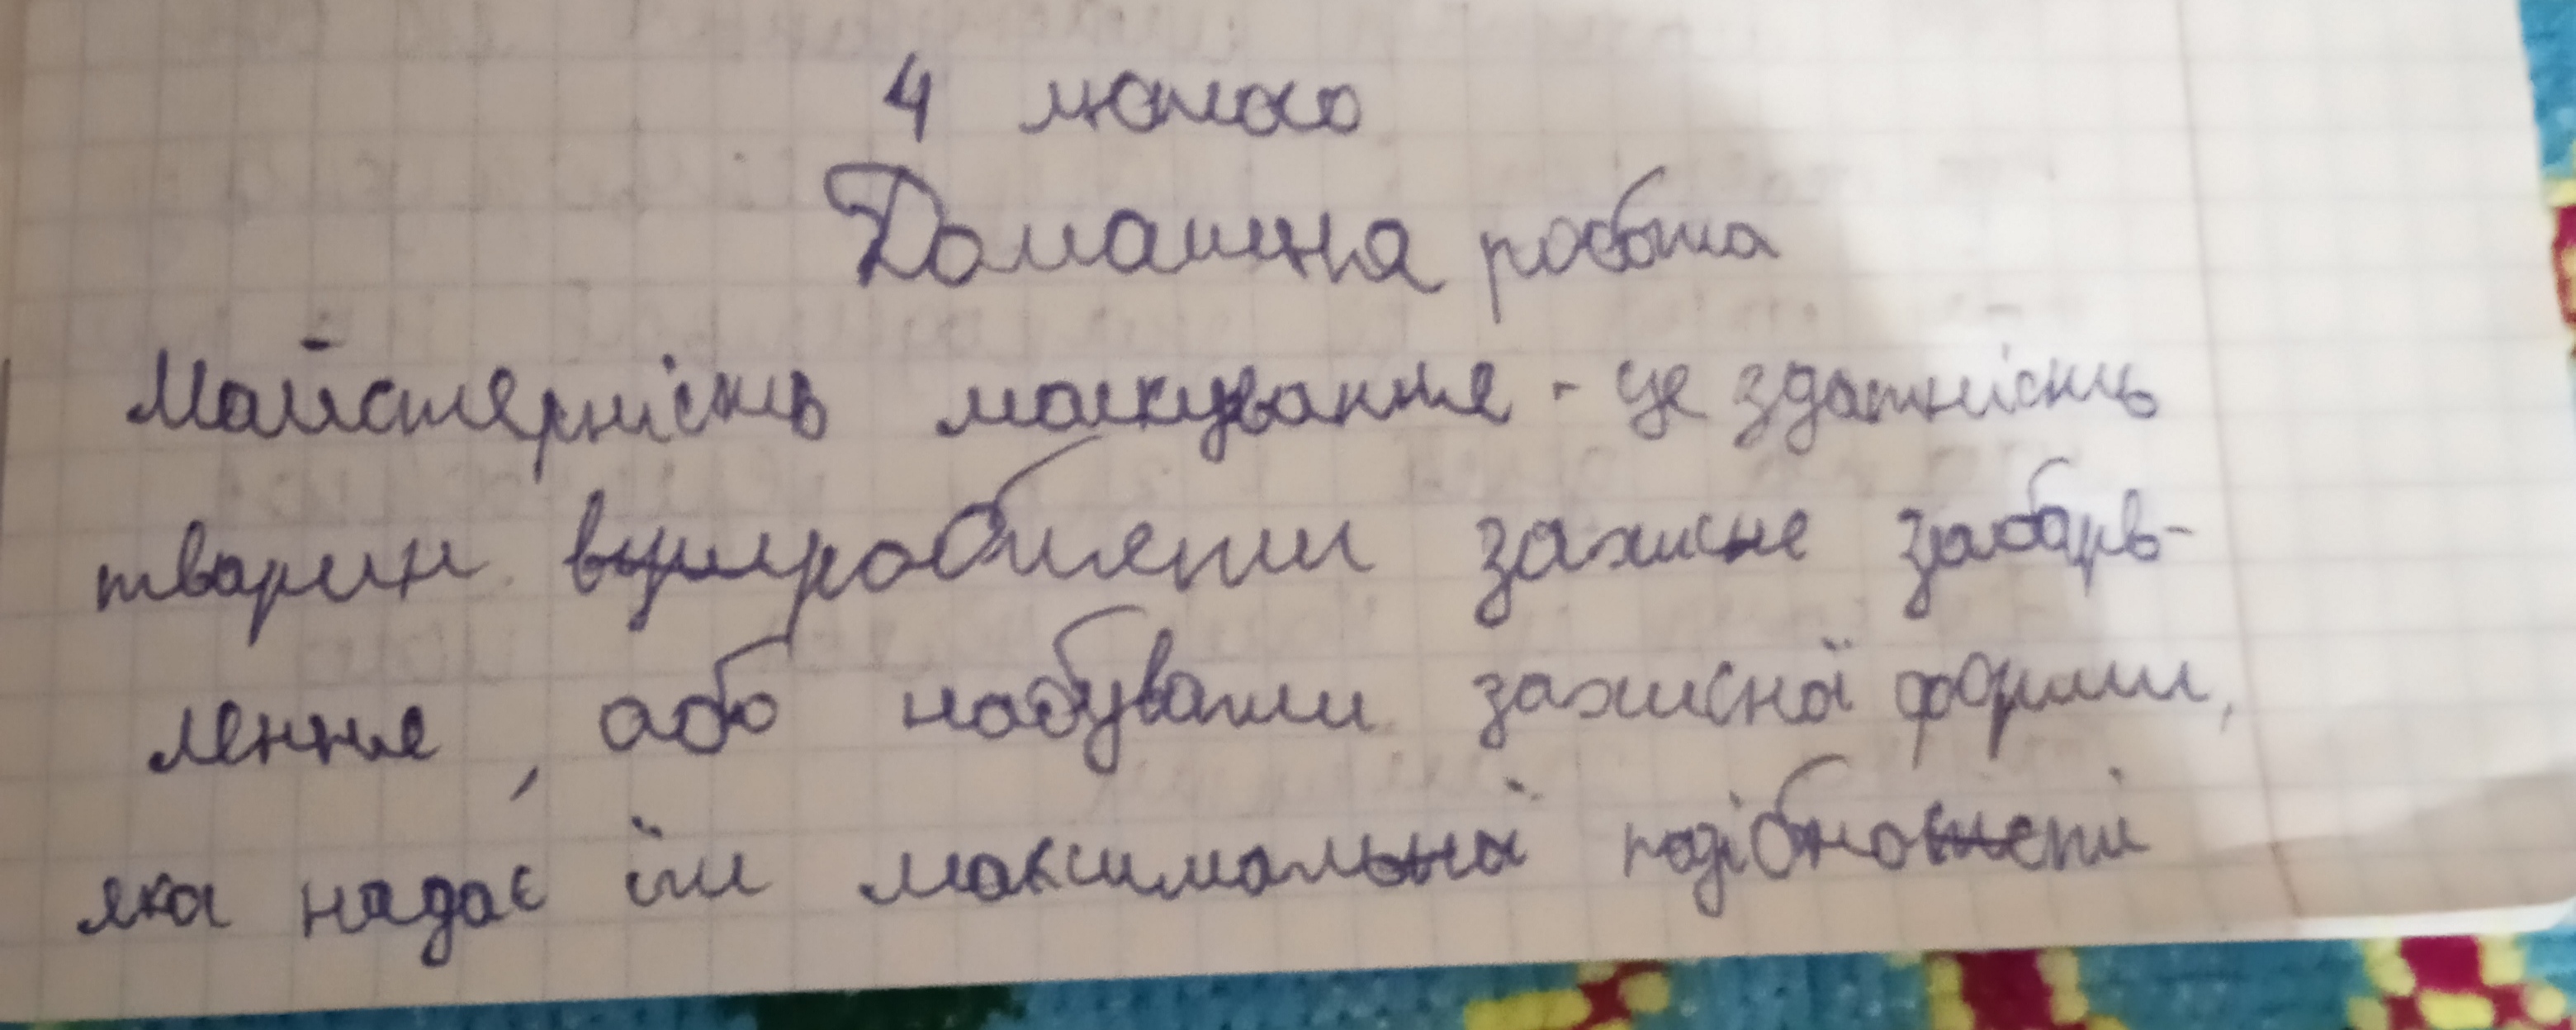 4 лютого
Домашня робота
Майстерність маскування - це здатність
тварин виробляти захисне забарв-
лення, або набувати захисної форми,
яка надає їм максимальної подібності